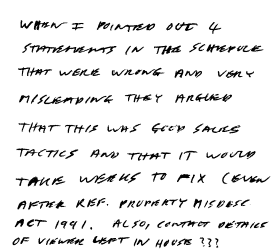 WHEN I POINTED OUT 4
STATEMENTS IN THE SCHEDULE
THAT WERE WRONG AND VERY
MISLEADING THEY ARGUED
THAT THIS WAS GOOD SALES
TACTICS AND THAT IT WOULD
TAKE WEEKS TO FIX (EVEN
AFTER REF. PROPERTY MISDESC
ACT 1991. ALSO, CONTACT DETAILS
OF VIEWER KEPT IN HOUSE ???